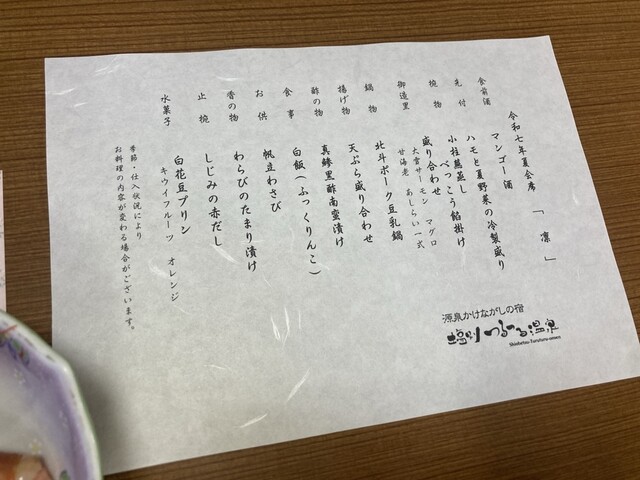 令和七年夏会席 「 凛 」
食前酒 マンゴー酒
先付 ハモと夏野菜の冷製盛り
焼物 小柱蕪蒸し
べっこう餡掛け
御造里 盛り合わせ
大雪サーモン マグロ
甘海老 あしらい一式
鍋物 北斗ポーク豆乳鍋
揚げ物 天ぷら盛り合わせ
酢の物 真鰊黒酢南蛮漬け
食事 白飯(ふっくりんこ)
お供 帆立わさび
香の物 わらびのたまり漬け
止椀 しじみの赤だし
水菓子 白花豆プリン
キウイフルーツ オレンジ
季節・仕入状況により
お料理の内容が変わる場合がございます。
源泉かけながしの宿
塩別つるつる温泉
Shiobetsu-Tsurutsuru-onsen